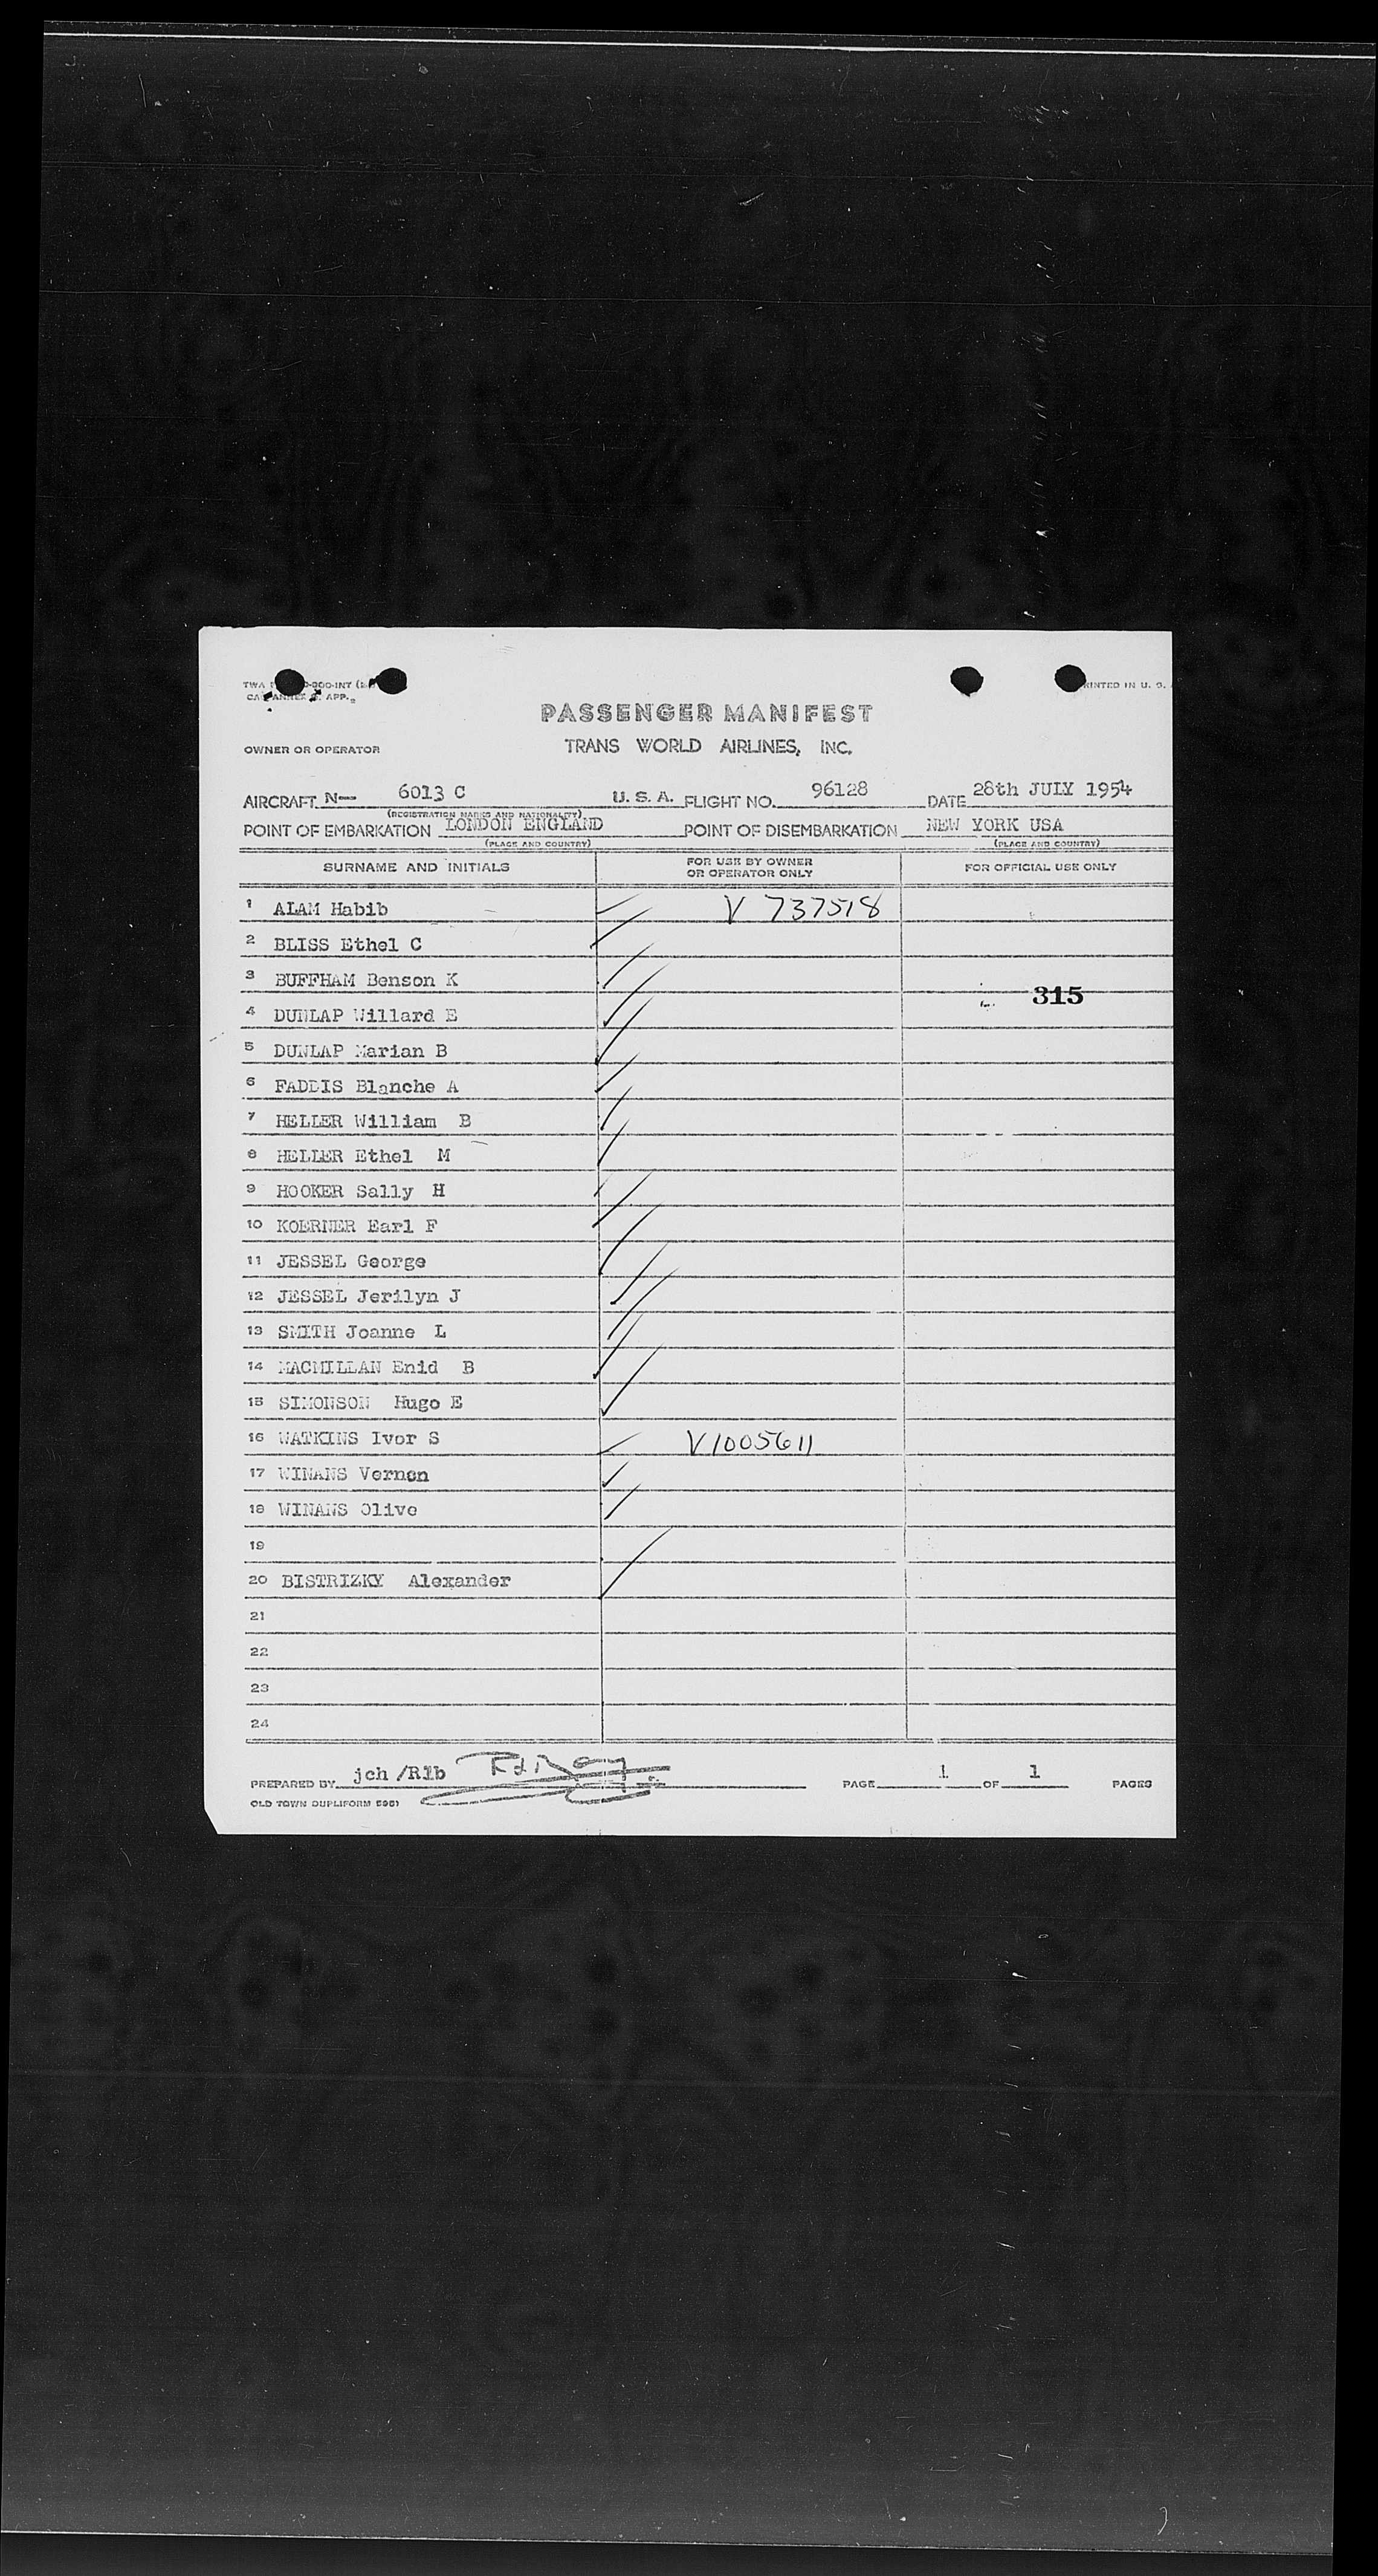 PASSENGER MANIFEST
OWNER OR OPERATOR TRANS WORLD AIRLINES, INC.
AIRCRAFT N— 6013 C U. S. A. FLIGHT NO. 96128 DATE 28th JULY 1954
(REGISTRATION MARKS AND NATIONALITY)
POINT OF EMBARKATION LONDON ENGLAND POINT OF DISEMBARKATION NEW YORK USA
(PLACE AND COUNTRY) (PLACE AND COUNTRY)
SURNAME AND INITIALS FOR USE BY OWNER OR OPERATOR ONLY FOR OFFICIAL USE ONLY
1 ALAM Habib V 737518
2 BLISS Ethel C
3 BUFFHAM Benson K
315
4 DUNLAP Willard E
5 DUNLAP Marian B
6 FADDIS Blanche A
7 HELLER William B
8 HELLER Ethel M
9 HOOKER Sally H
10 KOERNER Earl F
11 JESSEL George
12 JESSEL Jerilyn J
13 SMITH Joanne L
14 MACMILLAN Enid B
15 SIMONSON Hugo E
16 WATKINS Ivor S V1005611
17 WINANS Vernon
18 WINANS Olive
19
20 BISTRIZKY Alexander
21
22
23
24
PREPARED BY jch /Rlb PAGE 1 OF 1 PAGES
OLD TOWN DUPLIFORM